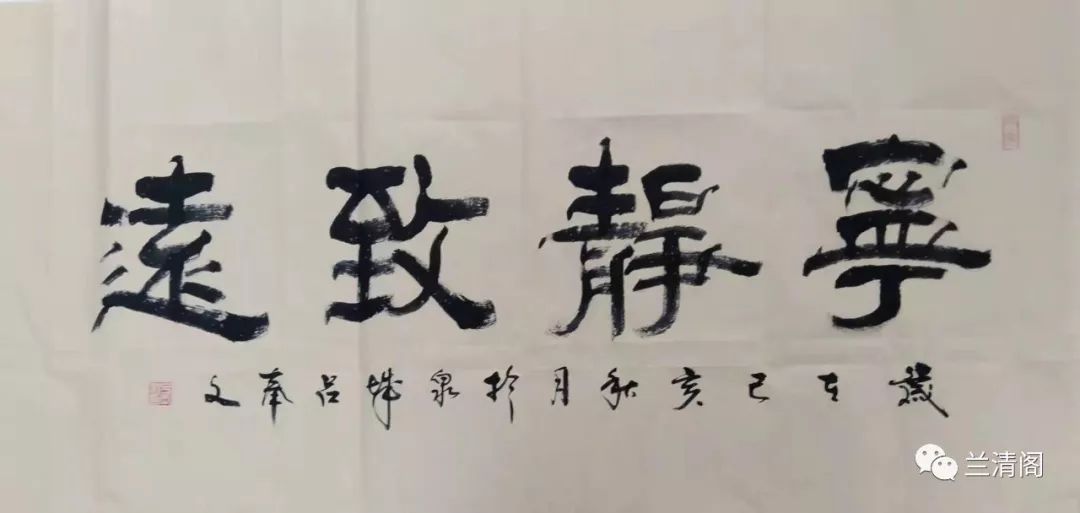 寧靜致遠
歲在己亥秋月於泉城呂奉文
兰清阁